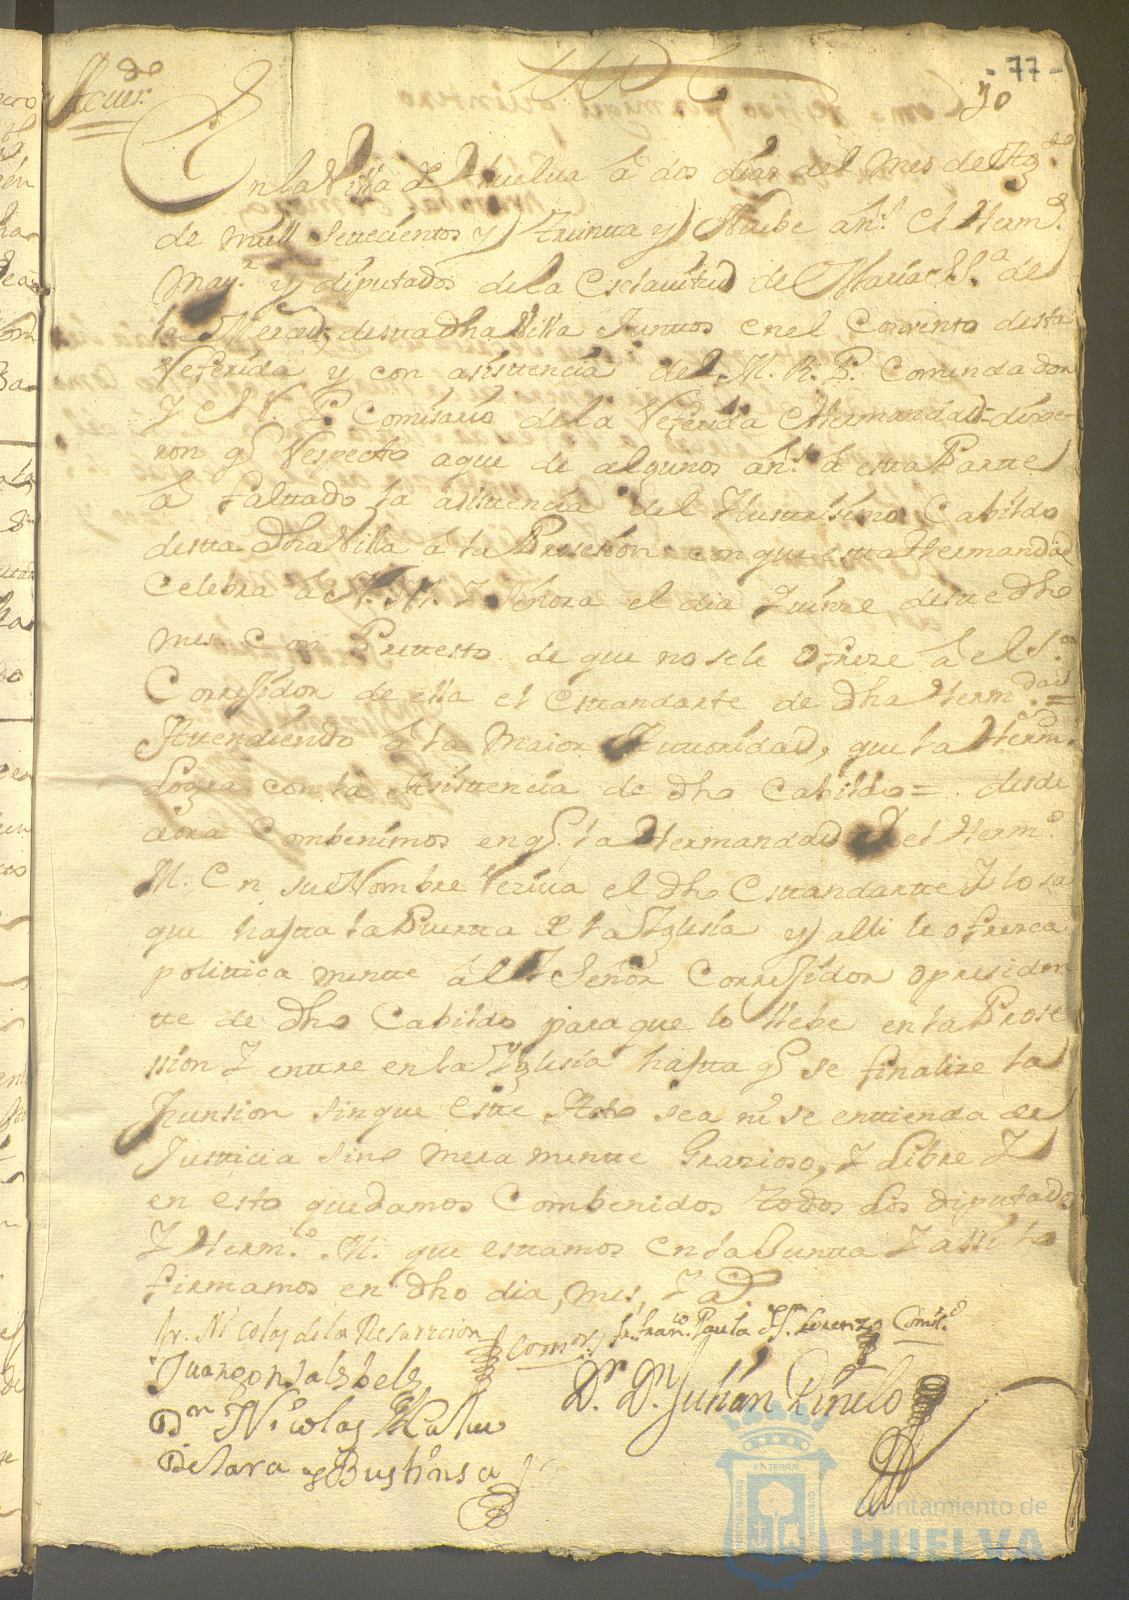 - 77 -
70
Acuerdo
En la Villa de Huelva â dos dias del Mes de Agto
de mill setecientos y Treinta y Nuebe añs. el Herm.o
May.r y diputados de la Esclauitud de Maria SS.a de
la Merced, desta dha Villa Juntos en el Convento desta
referida y con asistencia del M. R. P. Comendador
Y el R. P. Comisario de la referida Hermandad= dixe
ron q respecto aque de algunos añs. â esta Parte
â faltado la asistencia del Ilustrisimo Cabildo
desta dha Villa â la Prosesion con que esta Hermandad
Celebra â N. M. Y Señora el dia Quinze deste dho
mes Con Pretesto de que no sele Ofreze â el S.or
Corregidor de ella el Estandarte de dha Herm.dad =
Atendiendo â la maior Autoridad, que la Herm.d
Logra con la Asistencia de dho Cabildo = desde
aora Combenimos en q. la Hermandad Y el Herm.o
M. En su Nombre reciva el dho Estandarte Y lo sa
que hasta la Puerta de la Yglesia y alli le ofresca
politica mente âl Señor Corregidor o presiden
te de dho Cabildo para que lo llebe en la Prose
ssion Y entre en la Yglesia hasta q se finalize la
Funsion sin que este Acto sea ni se entienda de
Justicia sino mera mente Grazioso, Y Libre Y
en esto quedamos Combenidos todos los diputados
Y Herm.o M. que estamos en la Junta Y assi lo
firmamos en dho dia, mes, Y a.o
fr. Nicolas de la Resurecion Com.or fr. fran.co Paula Sn. Lorenzo Comis.o
Juan gonsales beles
Dr. Dn. Julián Pinelo
Dn Nicolas
De lara y Bustinsa
Ayuntamiento de
HUELVA